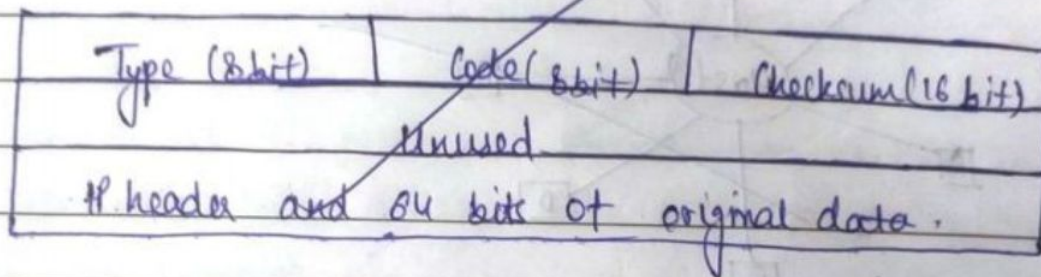 Type (8bit) Code (8bit) Checksum (16 bit)
Unused
IP. header and 64 bits of original data.